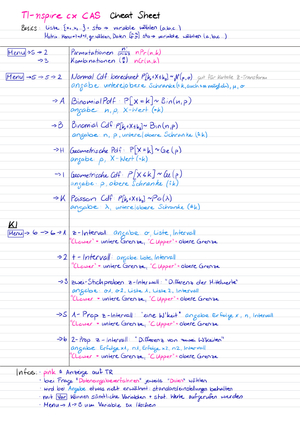 TI-nspire cx CAS Cheat Sheet
Basics: Liste {x₁,x₂...} → sto → variable wählen (a,b,c...)
Menü → 5 → 2 Permutationen nPr(n,k)
→ 3 Kombinationen nCr(n,k)
Menü → 5 → 5 → 2 Normal Cdf berechnet P[k₁≤X≤k₂]~N(μ,σ)
angabe untere/obere Schranke μ, σ
→ A Binomial Pdf P[X=k]~Bin(n,p)
angabe n, p, X-Wert (=k)
→ B Binomial Cdf P[k₁≤X≤k₂]~Bin(n,p)
angabe n, p, untere/obere Schranke (≤k)
→ H Geometrische Pdf P[X=k]~Ge(p)
angabe p, X-Wert (=k)
→ I Geometrische Cdf P[X≤k]~Ge(p)
angabe p, obere Schranke (≤k)
→ K Poisson Cdf P[k₁≤X≤k₂]~Po(λ)
angabe λ, untere/obere Schranke (≤k)
KI
Menü → 6 → 6 → 1 z-Intervall angabe σ, Liste, Intervall
"CLower" = untere Grenze, "CUpper" = obere Grenze
→ 2 t-Intervall angabe Liste, Intervall
"CLower" = untere Grenze, "CUpper" = obere Grenze
→ 3 zwei-Stichproben z-Intervall "Differenz der Mittelwerte"
angabe σ1, σ2, Liste 1, Liste 2, Intervall
"CLower" = untere Grenze, "CUpper" = obere Grenze
→ 5 1-Prop z-Intervall "eine W'keit" angabe Erfolge x, n, Intervall
"CLower" = untere Grenze, "CUpper" = obere Grenze
→ 6 2-Prop z-Intervall "Differenzen von W'keiten"
angabe Erfolge x1, n1, Erfolge x2, n2, Intervall
"CLower" = untere Grenze, "CUpper" = obere Grenze
Infos: • pink = Anzeige auf TR
• bei Frage "Dateneingabeverfahren" jeweils "Daten" wählen
• wird bei Angabe etwas nicht erwähnt: standardeinstellung behalten
• mit Var können sämtliche Variablen + stat. Werte aufgerufen werden
• Menü → 1 → 3 um Variable zu löschen